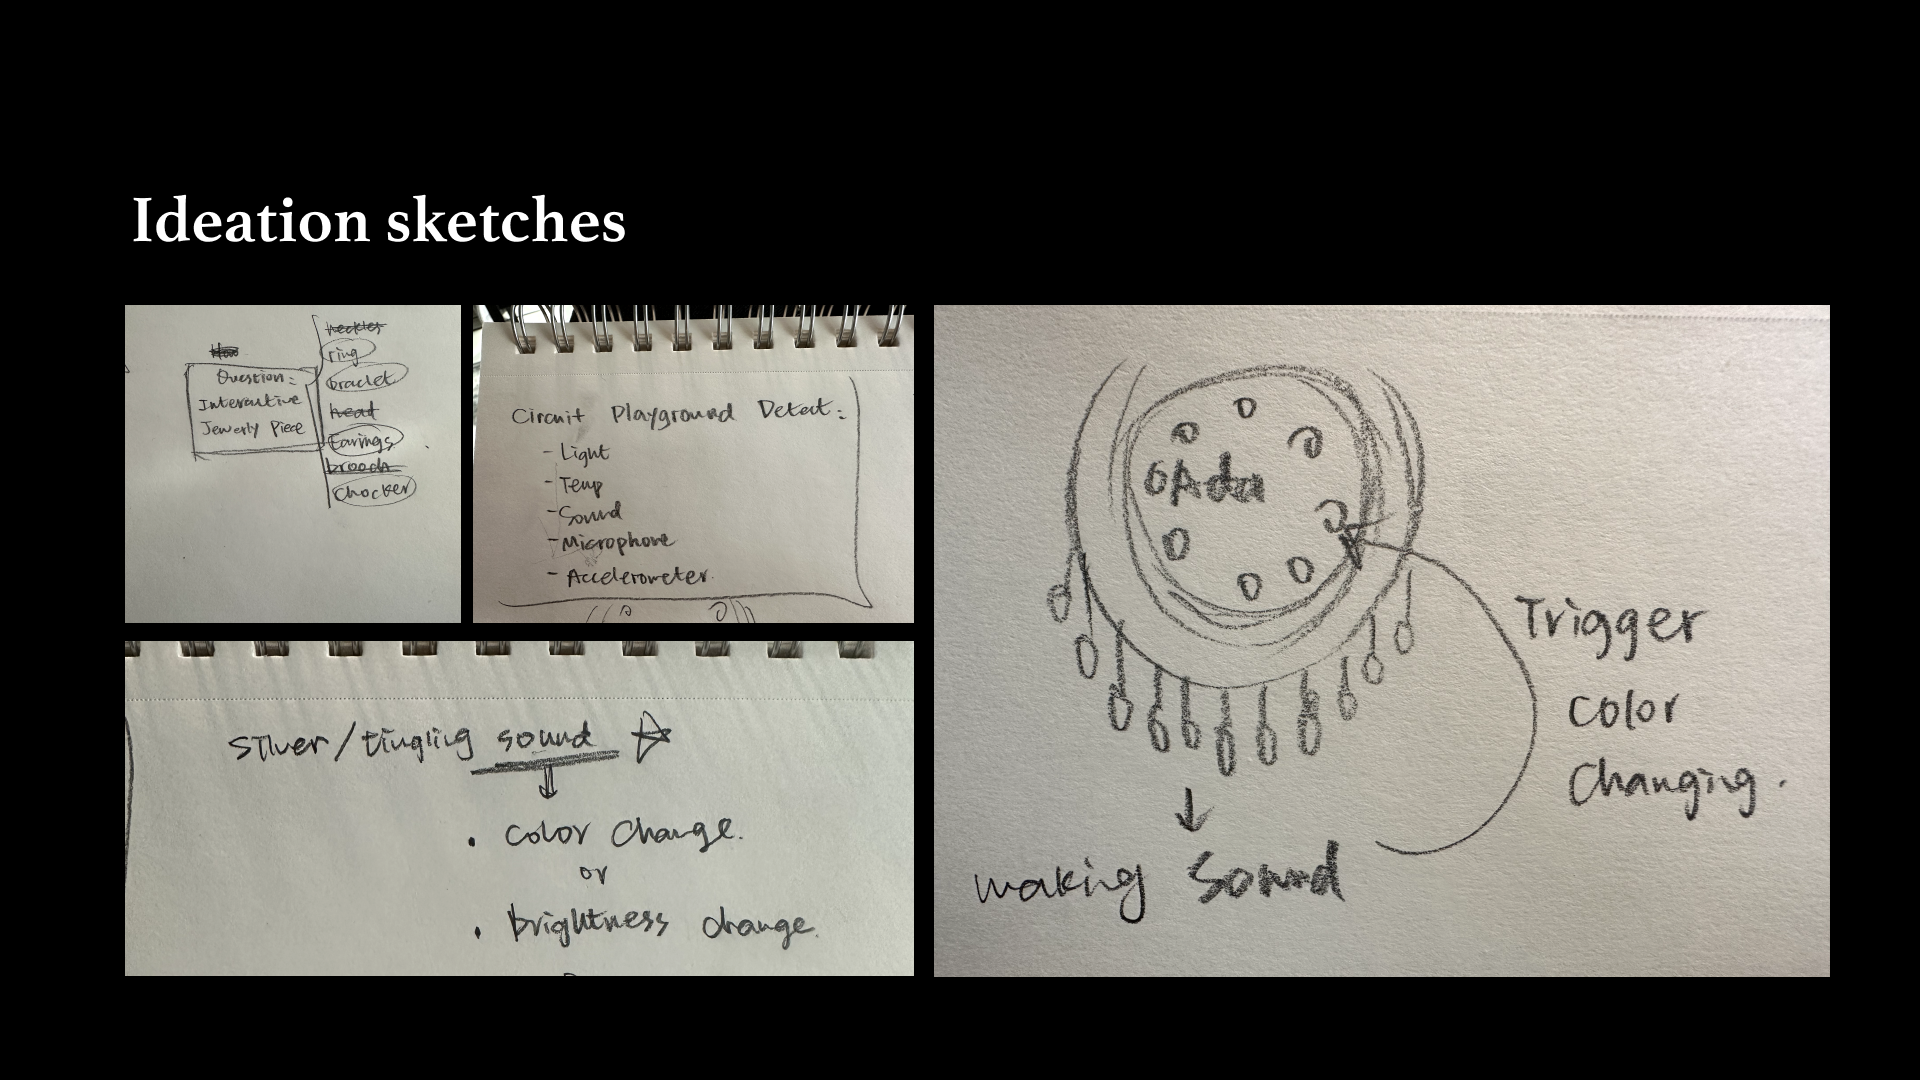 Ideation sketches
Question:
Interactive
Jewerly Piece
ring
braclet
head
Earings
brooch
Chocker
Circuit Playground Detect:
- Light
- Temp
- Sound
- Microphone
- Accelerometer.
silver/tingling sound
• color change.
or
• brightness change.
Trigger
color
Changing.
making Sound